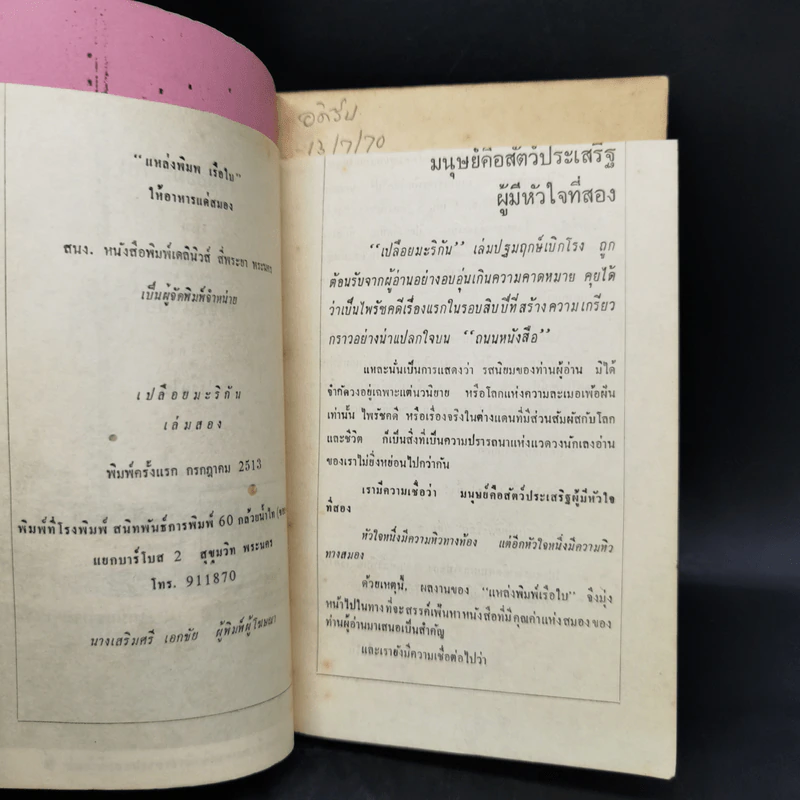 "แหล่งพิมพ เรือใบ"
ให้อาหารแด่สมอง
สนง. หนังสือพิมพ์เดลินิวส์ สี่พระยา พระนคร
เป็นผู้จัดพิมพ์จำหน่าย
เปลือยมะริกัน
เล่มสอง
พิมพ์ครั้งแรก กรกฎาคม 2513
พิมพ์ที่โรงพิมพ์ สนิทพันธ์การพิมพ์ 60 กล้วยน้ำไท
แยกบาร์โบส 2 สุขุมวิท พระนคร
โทร. 911870
นางเสริมศรี เอกชัย ผู้พิมพ์ผู้โฆษณา
13/7/70
มนุษย์คือสัตว์ประเสริฐ
ผู้มีหัวใจที่สอง
"เปลือยมะริกัน" เล่มปฐมฤกษ์เบิกโรง ถูก
ต้อนรับจากผู้อ่านอย่างอบอุ่นเกินความคาดหมาย คุยได้
ว่าเป็นไพรัชคดีเรื่องแรกในรอบสิบปีที่สร้างความเกรียว
กราวอย่างน่าแปลกใจบน "ถนนหนังสือ"
แหละนั่นเป็นการแสดงว่า รสนิยมของท่านผู้อ่าน มิได้
จำกัดวงอยู่เฉพาะแต่นวนิยาย หรือโลกแห่งความละเมอเพ้อฝัน
เท่านั้น ไพรัชคดี หรือเรื่องจริงในต่างแดนที่มีส่วนสัมผัสกับโลก
และชีวิต ก็เป็นสิ่งที่เป็นความปรารถนาแห่งแวดวงนักเลงอ่าน
ของเราไม่ยิ่งหย่อนไปกว่ากัน
เรามีความเชื่อว่า มนุษย์คือสัตว์ประเสริฐผู้มีหัวใจ
ที่สอง
หัวใจหนึ่งมีความหิวทางท้อง แต่อีกหัวใจหนึ่งมีความหิว
ทางสมอง
ด้วยเหตุนี้, ผลงานของ "แหล่งพิมพ์เรือใบ" จึงมุ่ง
หน้าไปในทางที่จะสรรค์เฟ้นหาหนังสือที่มีคุณค่าแห่งสมองของ
ท่านผู้อ่านมาเสนอเป็นสำคัญ
และเรายังมีความเชื่อต่อไปว่า